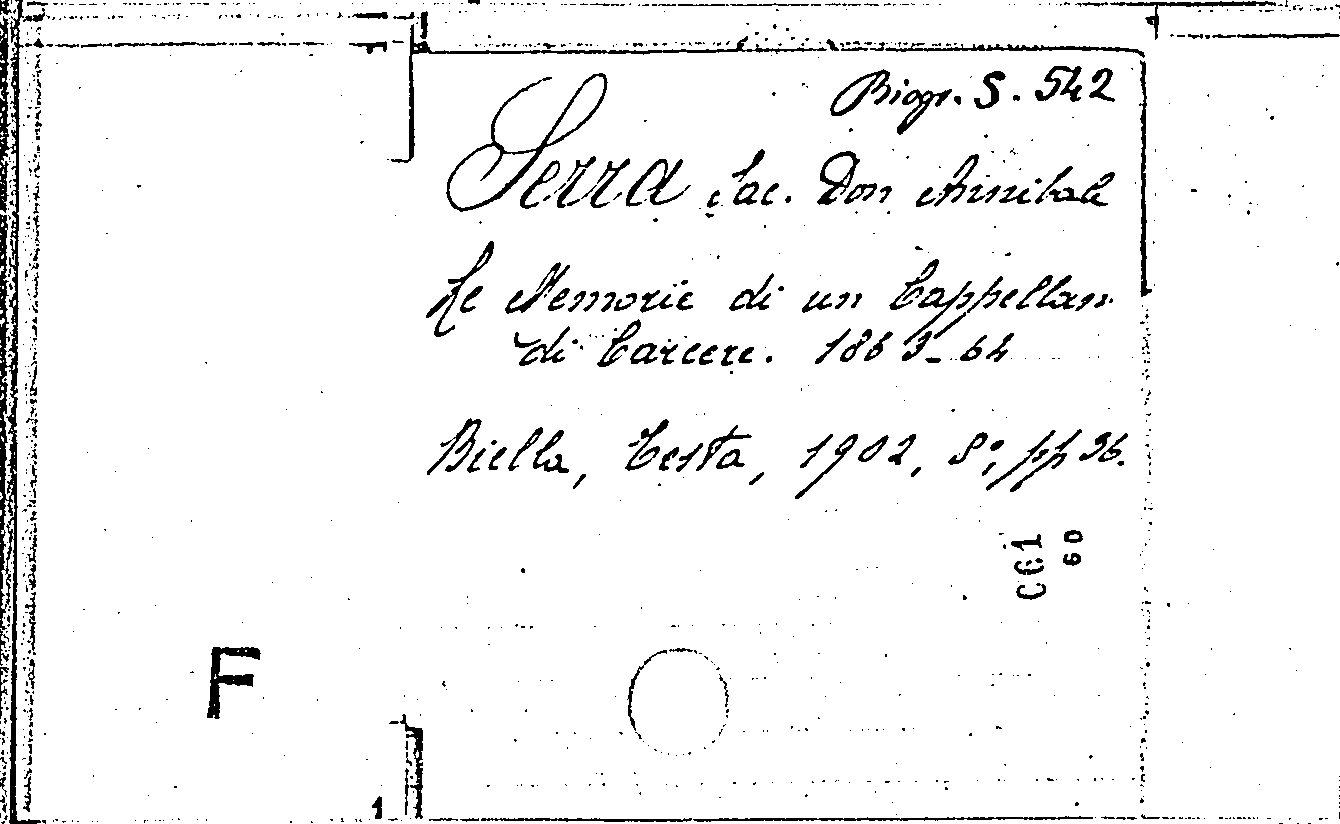 Biogr. S. 542
Serra Sac. Don Annibale
Le Memorie di un Cappellan
di Carcere. 1863-64
Biella, Testa, 1902, 8°, pp 36.
CC1
60
F
1